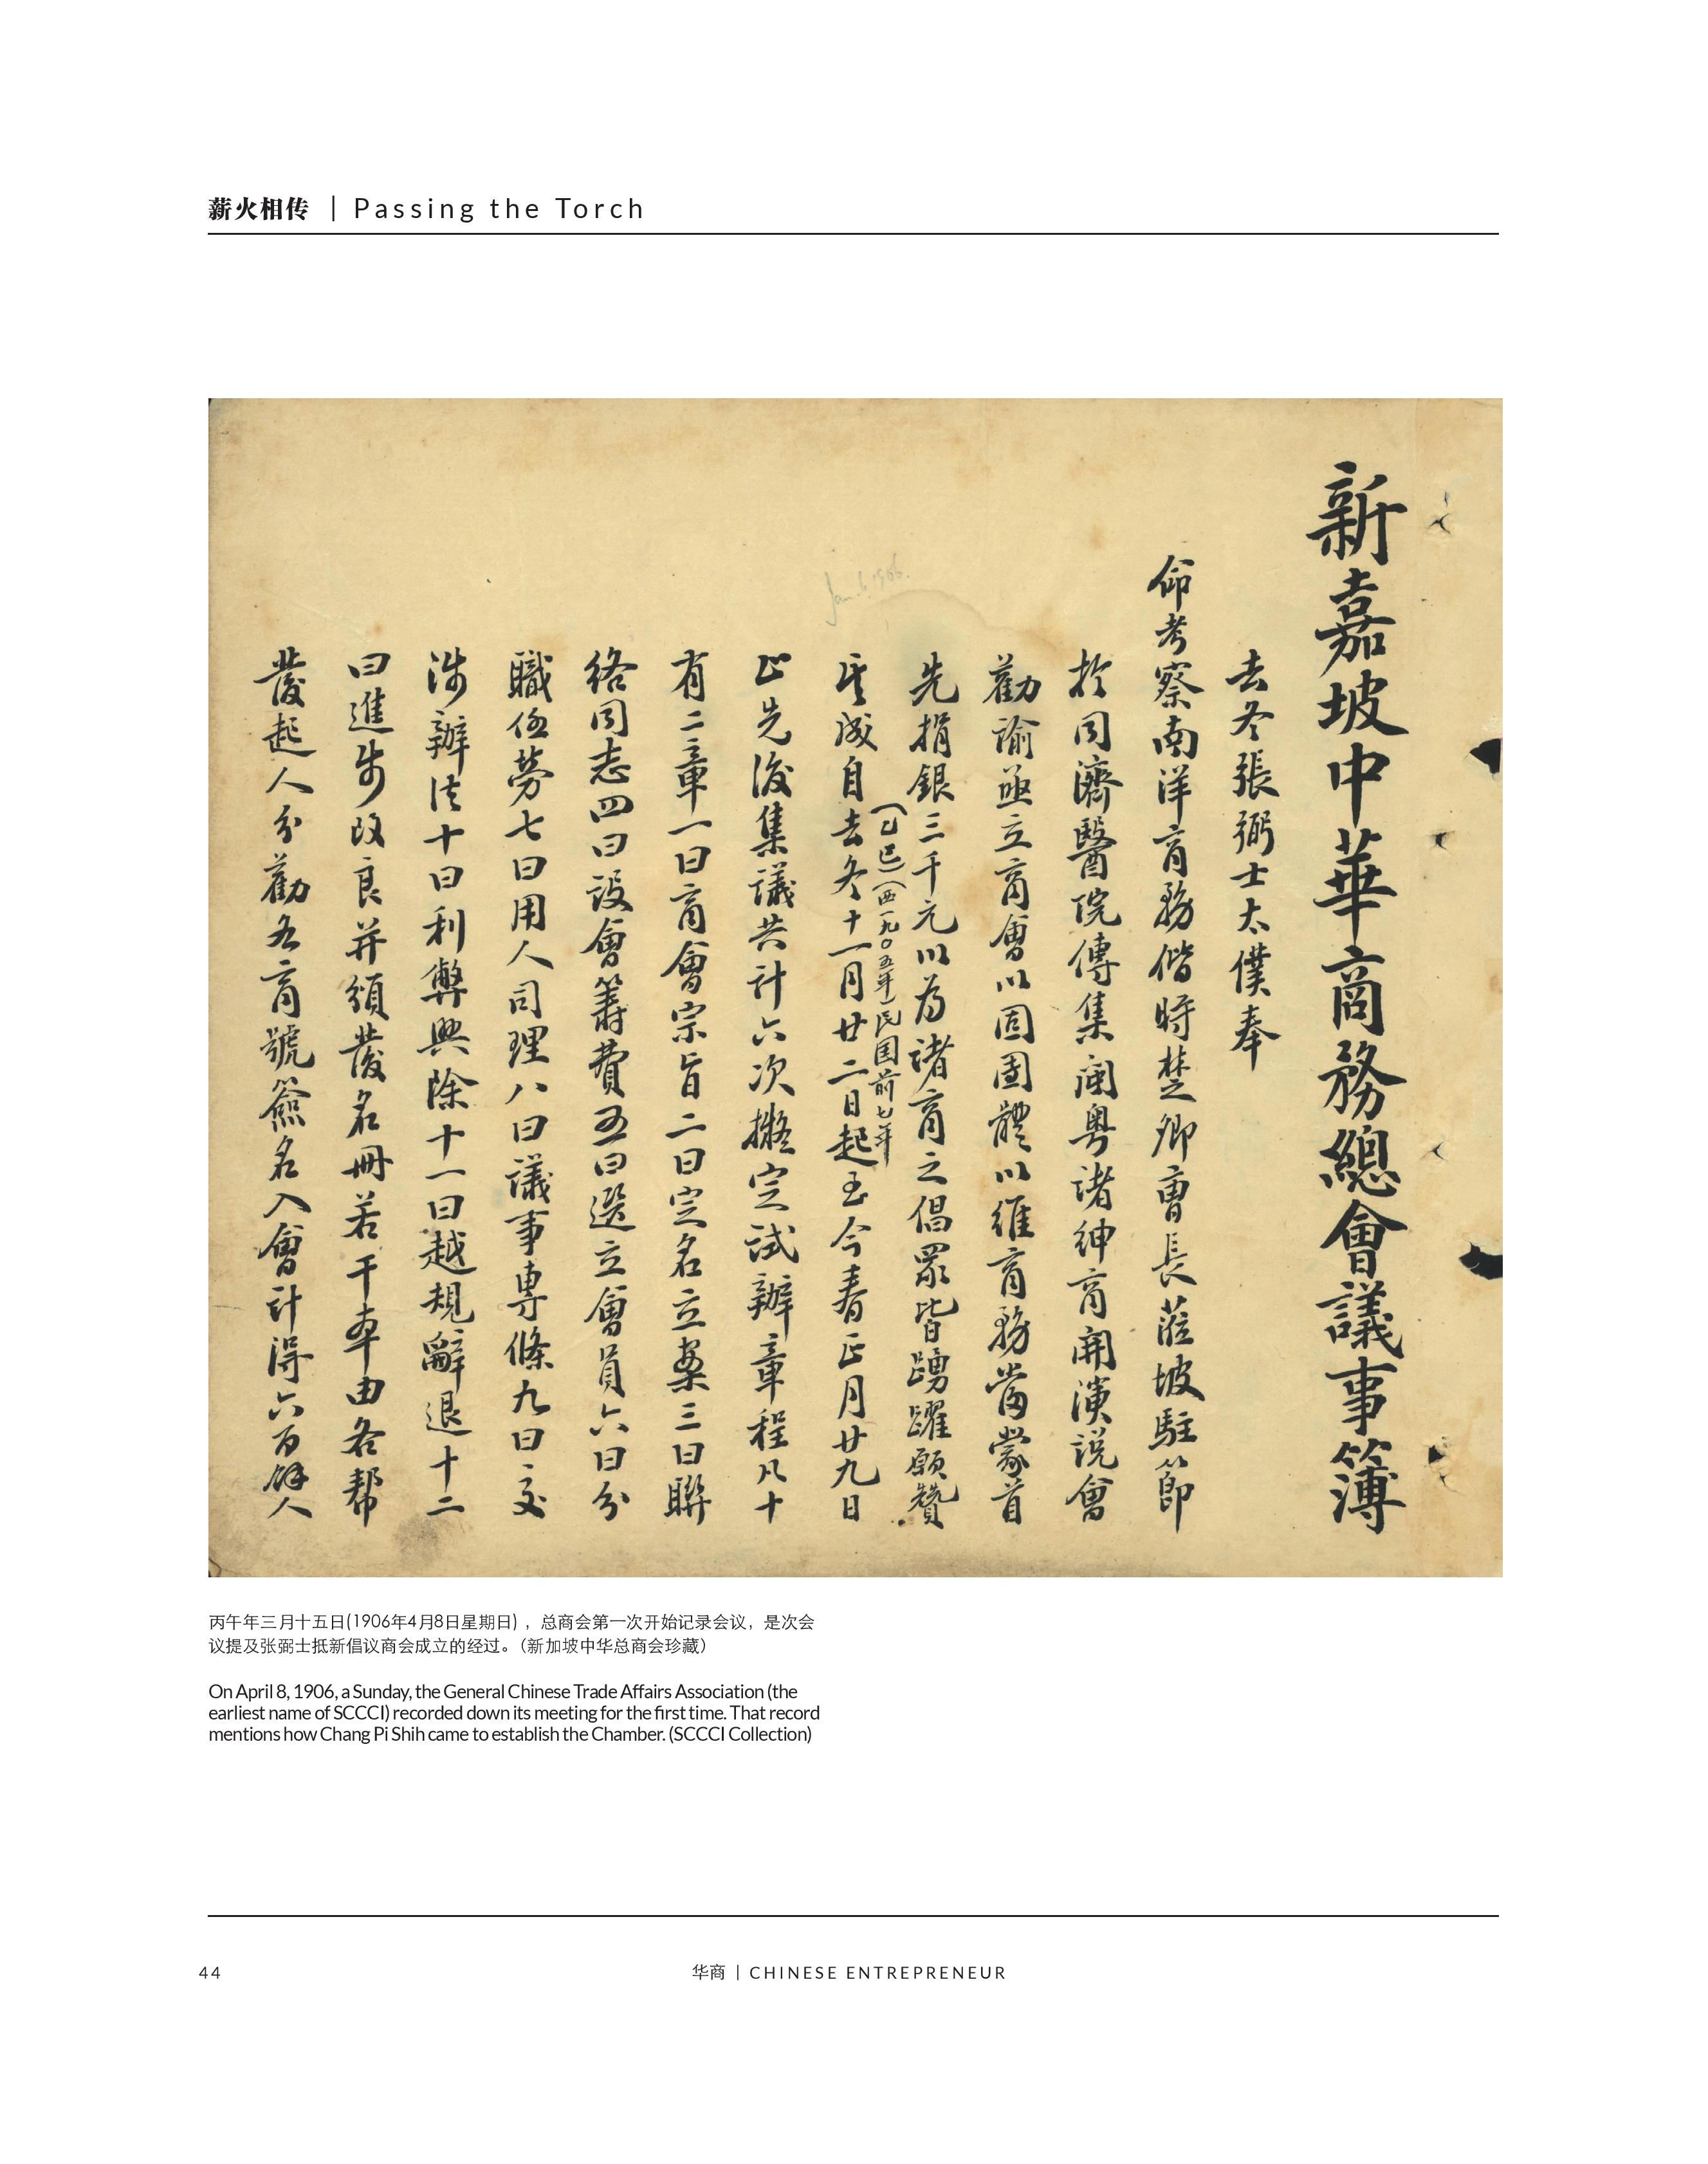 薪火相传 | Passing the Torch
新嘉坡中華商務總會議事簿
去冬張弼士太僕奉
命考察南洋商務偕時楚卿曹長蒞坡駐節
於同濟醫院傳集閩粵諸紳商開演説會
勸諭亟立商會以固團體以維商務當蒙首
先捐銀三千元以為諸商之倡眾皆踴躍願贊
(乙巳)(西一九〇五年)民国前七年
其成自去冬十一月廿二日起至今春正月廿九日
止先後集議共計六次擬定試辦章程凡十
有二章一曰商會宗旨二曰定名立案三曰聯
絡同志四曰設會籌費五曰選立會員六曰分
職任勞七曰用人司理八曰議事專條九曰交
涉辦法十曰利弊興除十一曰越規辭退十二
曰進步改良并頒發名冊若干本由各幇
發起人分勸各商號簽名入會計得六百餘人
丙午年三月十五日(1906年4月8日星期日)，总商会第一次开始记录会议，是次会
议提及张弼士抵新倡议商会成立的经过。（新加坡中华总商会珍藏）
On April 8, 1906, a Sunday, the General Chinese Trade Affairs Association (the
earliest name of SCCCI) recorded down its meeting for the first time. That record
mentions how Chang Pi Shih came to establish the Chamber. (SCCCI Collection)
44
华商 | CHINESE ENTREPRENEUR